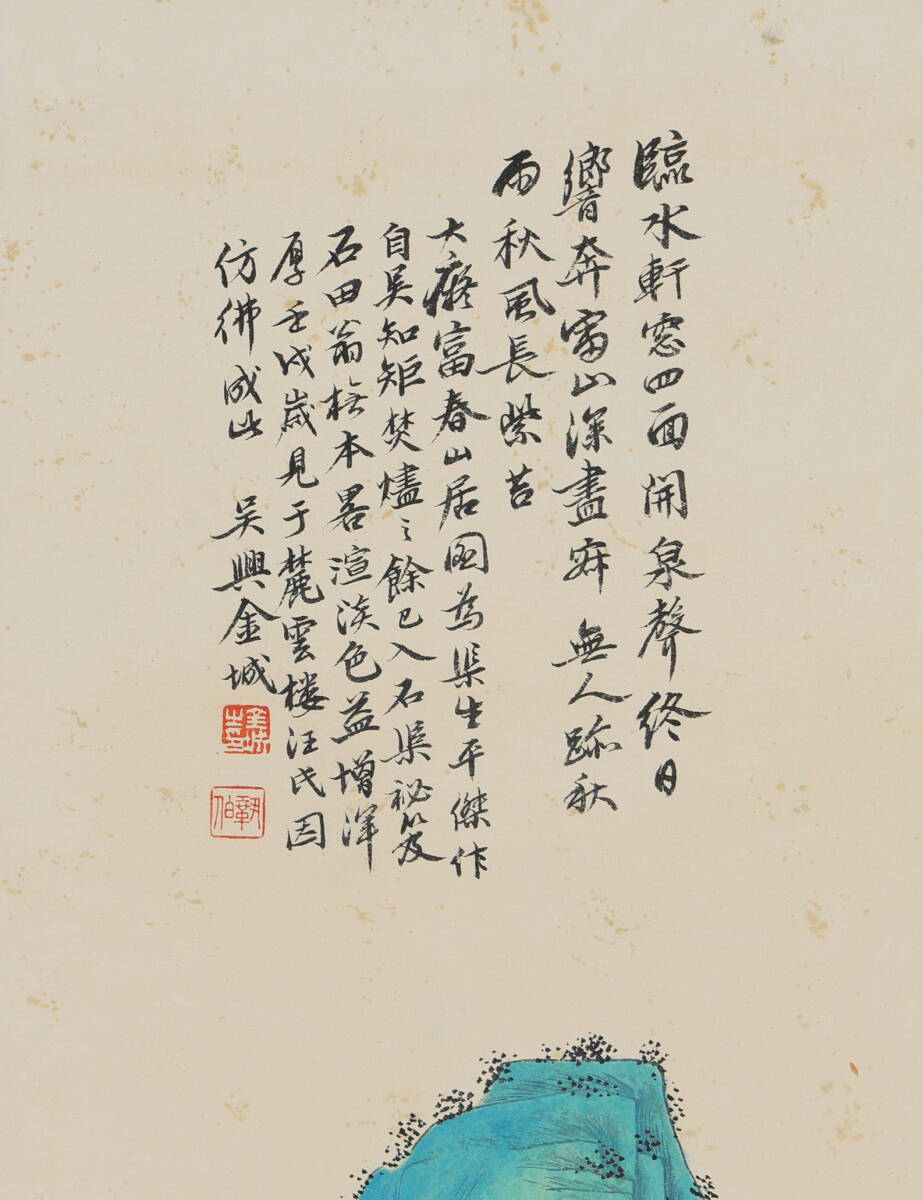 臨水軒窓四面開泉聲終日
響奔雷山深盡寂無人跡秋
雨秋風長紫苔
大癡富春山居圖為渠生平傑作
自吴知矩焚燼之餘已入石渠祕笈
石田翁橅本畧渲淡色益增渾
厚壬戌歲見于麓雲楼汪氏因
仿彿成此 吴興金城